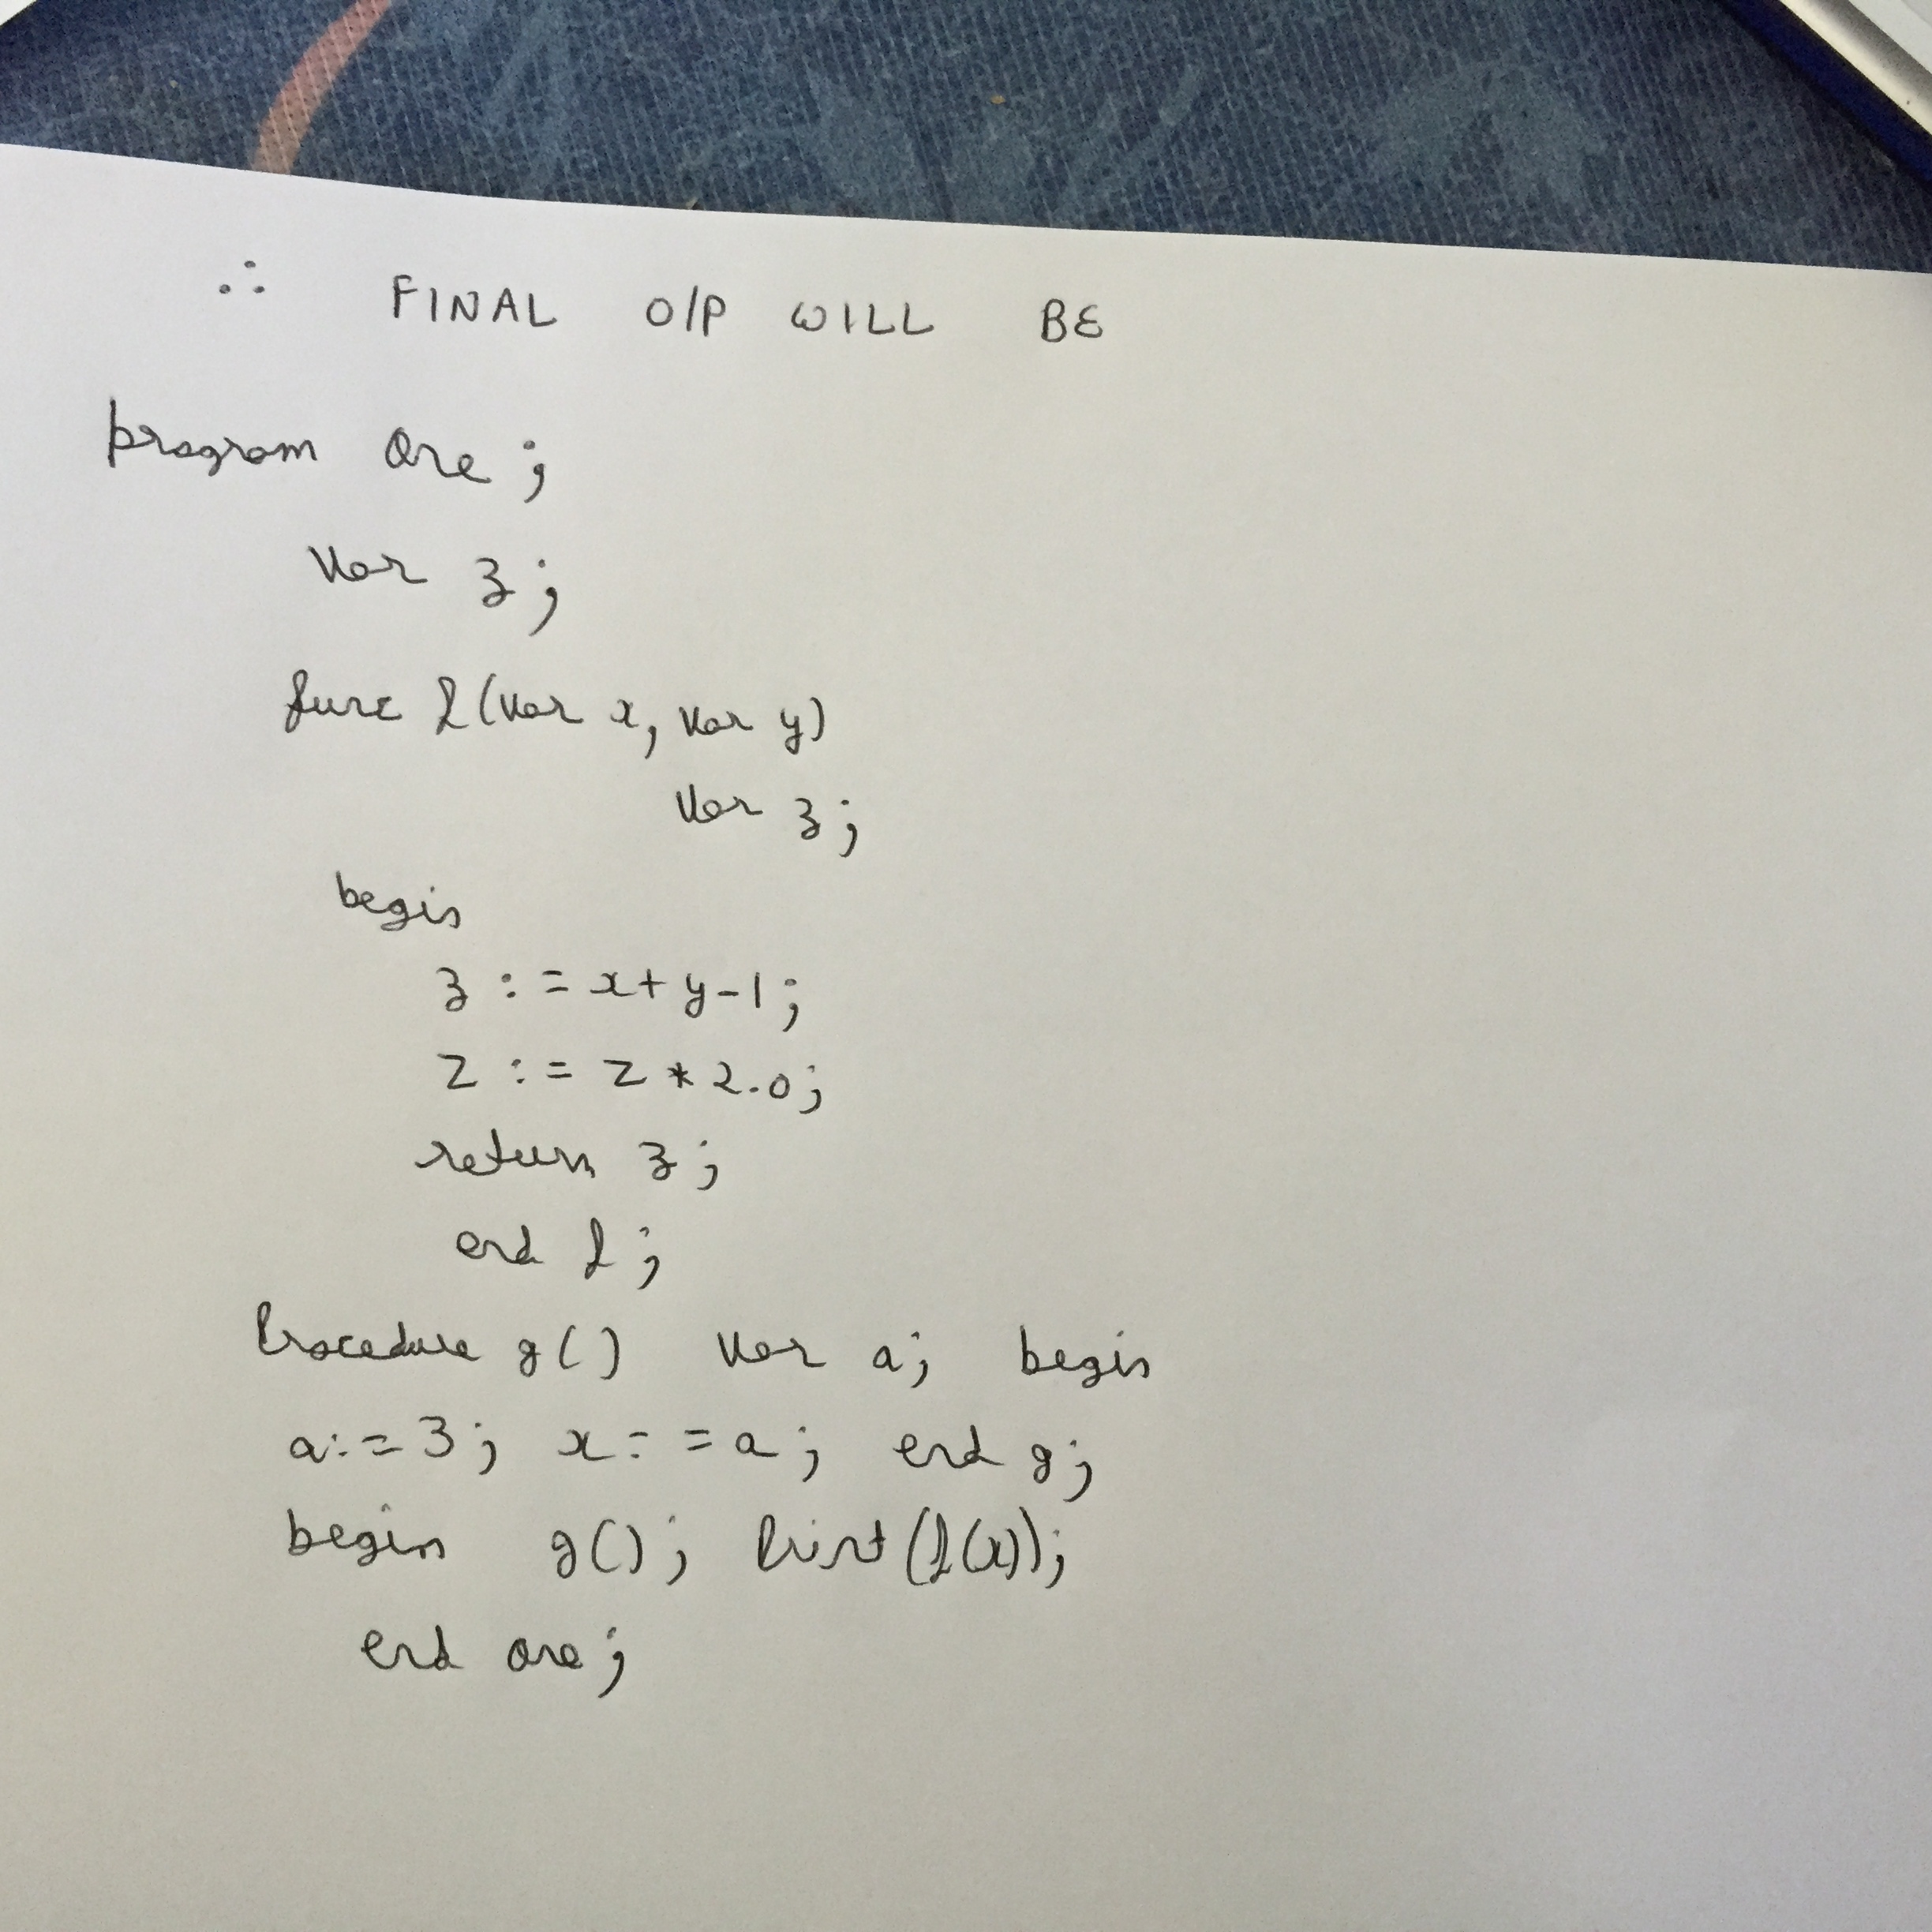 ∴ FINAL O/P WILL BE
program one;
var z;
func f(var x, var y)
var z;
begin
z := x+y-1;
z := z * 2.0;
return z;
end f;
Procedure g() var a; begin
a:=3; x:=a; end g;
begin g(); Print(f(x));
end one;